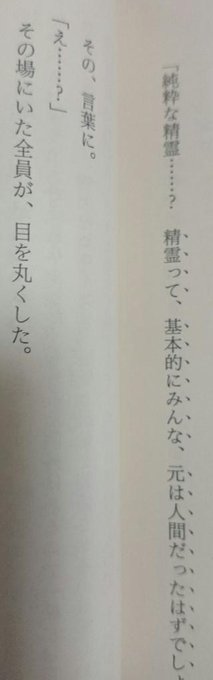 「純粋な精霊……？　精霊って、基本的にみんな、元は人間だったはずでし
その、言葉に。
「え……？」
その場にいた全員が、目を丸くした。